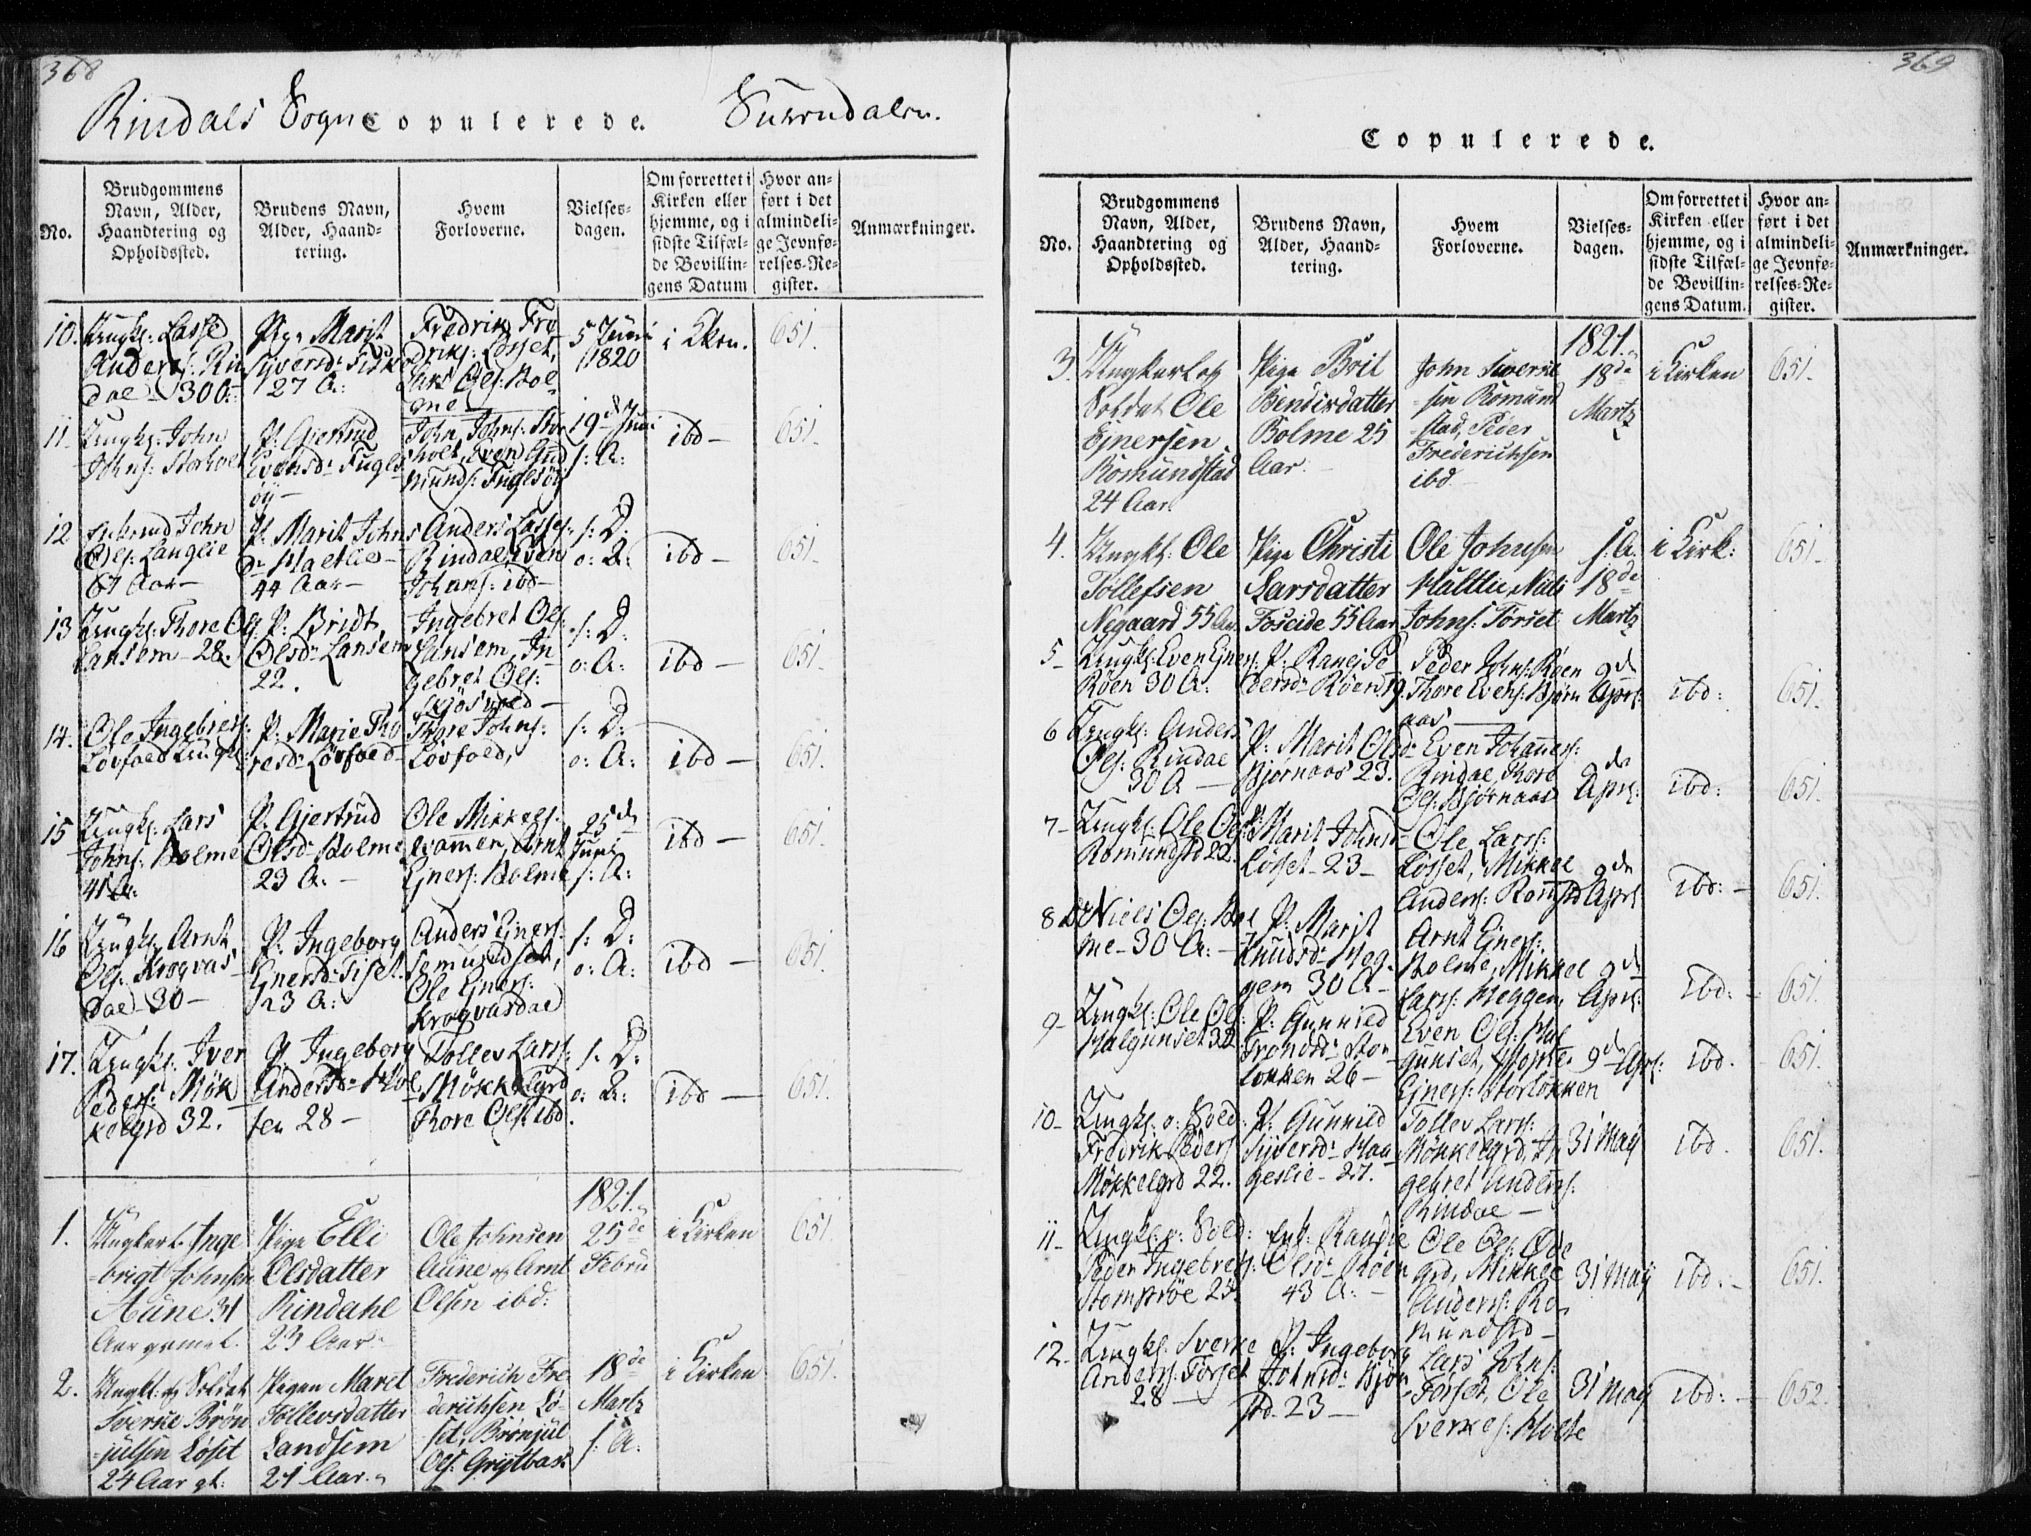 368
Rindals Sogn
Copulerede.
Surendalen.
No.
Brudgommens
Navn, Alder,
Haandtering og
Opholdssted.
Brudens Navn,
Alder, Haand-
tering.
Hvem
Forloverne.
Vielses-
dagen.
Om forrettet i
Kirken eller
hjemme, og i
sidste Tilfæl-
de Bevillin-
gens Datum
Hvor an-
ført i det
almindeli-
ge Jevnfø-
relses-Re-
gister.
Anmærkninger.
10.
Ungk: Lasse
Anders: Rin
dal 30
Pige Marit
Syversd: Fiske
27 A:
Fredrik Fre
driks: Løsset,
Lars Ols: Bol-
me
5 Juni
1820
i Kkn.
651.
11.
Ungk: John
Johns: Storholt
P: Gjertrud
Evensd: Fugls
øy
John Johns: Stor
holt, Even Gud
munds: Fuglsøy
19 Juni
s: A:
ibd
651.
12
John
Ols: Langlie
Aar
P. Marit Johns
d:
44 Aar
Anders Lasses:
Rindal, Even
Johans: ibd
s: D:
o: A:
ibd
651
13
Ungk: Thore Ols:
Lansem 28.
P: Bridt
Olsd: Lansem
22.
Ingebret Ols:
Lansem, In
gebret Ols:
s: D:
o: A:
ibd
651
14.
Ole Ingebrets:
Løvfald Ungk:
P: Marie Tho
resd: Løvfald
Thore Johns:
Løvfald,
s: D:
o: A:
ibd
651.
15
Ungk: Lars
Johns: Bolme
41 A:
P: Gjertrud
Olsd: Bolme
23 A:
Ole Mikkels:
Arnt
Ejners: Bolme
25 de
Juni
s: A:
ibd
651.
16
Ungk: Arnt
Ols: Krogvas
dal 30
P: Ingeborg
Ejnersd: Tiset
23 A:
Anders Ejners:
Ole Ejners:
Krogvasdal
s: D:
o: A:
ibd
651.
17.
Ungk: Iver
Peders: Møk
kelgrd 32.
P. Ingeborg
Andersd: Hol
ten 28
Tollev Lars:
Møkkelgrd
Thore Ols: ibd.
s: D:
o: A:
ibd
651.
1821.
1.
Ungkarl Inge
brigt Johnsen
Aune 31
Aar gamel.
Pige Elli
Olsdatter
Rindahl
23 Aar
Ole Johnsen
Aune og Arnt
Olsen ibd:
25 de
Febru
i Kirken
651.
2.
Ungk: og Soldat
Sverke Brøn
julsen Løset
24 Aar gl:
Pigen Maret
Tollevsdatter
Landsem
21 Aar.
Frederich Fre
derichsen Lø-
set, Brønjul
Ols: Grytbak
18 de
Martz
s: A:
i Kirken
651.
369
Copulerede.
No.
Brudgommens
Navn, Alder,
Haandtering og
Opholdssted.
Brudens Navn,
Alder, Haand-
tering.
Hvem
Forloverne.
Vielses-
dagen.
Om forrettet i
Kirken eller
hjemme, og i
sidste Tilfæl-
de Bevillin-
gens Datum.
Hvor an-
ført i det
almindeli-
ge Jevnfø-
relses-Re-
gister.
Anmærkninger.
3.
Ungkarl og
Soldat Ole
Ejnersen
Romundstad
24 Aar
Pige Brit
Bendixdatter
Bolme 25
Aar.
John Sverke
sen Romund
stad, Peder
Frederichsen
ibd
1821.
18 de
Martz
i Kirken
651.
4.
Ungk: Ole
Tollefsen
Negaard 55 Aar
Pige Christi
Larsdatter
Foseide 55 Aar
Ole Johnsen
Nils
Johns: Torset
s: A:
18 de
Martz
i Kirk:
651
5
Ungk: Even Ejners:
Røen 30 A:
P: Ranej Pe
dersd: Røen 19.
Peder Johns: Røen
Thore Evens: Bjørn
aas
9 de
Apri:
ibd:
651.
6
Ungk: Anders
Ols: Rindal
30 A
P: Marit Olsd
Bjørnaas 23.
Even Johanes:
Rindal, Thore
Ols: Bjørnaas
do
Apri:
ibd:
651.
7
Ungk: Ole Ols:
Romundstd 22.
P: Marit Johnsd
Løsset 23
Ole Lars:
Løsset, Mikkel
Anders: Romstd
9 de
Apri:
ibd:
651.
8
Niels Ols: Bol
me 30 A:
P: Marit
Knudsd: Heg-
gem 30 A
Arnt Ejners:
Bolme, Mikkel
Lars: Heggem
9 de
Apri:
ibd:
651.
9
Ungk: Ole Ols:
Halgunset 32
P: Gunnild
Trondsd: Stor
løkken 26
Even Ols: Hal
gunset,
Ejners: Storløkken
9 de Apri:
ibd.
651.
10
Ungk: o: Sold.
Fredrik Peders
Møkkelgrd 22.
P. Gunnild
Syversd: Hau
geslie 27.
Tollev Lars:
Møkkelgrd, In
gebret Anders:
Rindal
31 May
ibd.
651.
11
Ungk: o: Sold:
Peder Ingebrets:
Romsøe 25.
Enk: Randie
Olsd: Røen
43 A:
Ole Ols: Øde
grd, Mikkel
Anders: Ro
mundstd
31 May
ibd:
651.
12
Ungk: Sverke
Anders: Torset
28
P. Ingeborg
Johnsd: Bjør
23
Lars Johns:
Torset, Ole
Sverkes: Holte
31 May
ibd:
652.